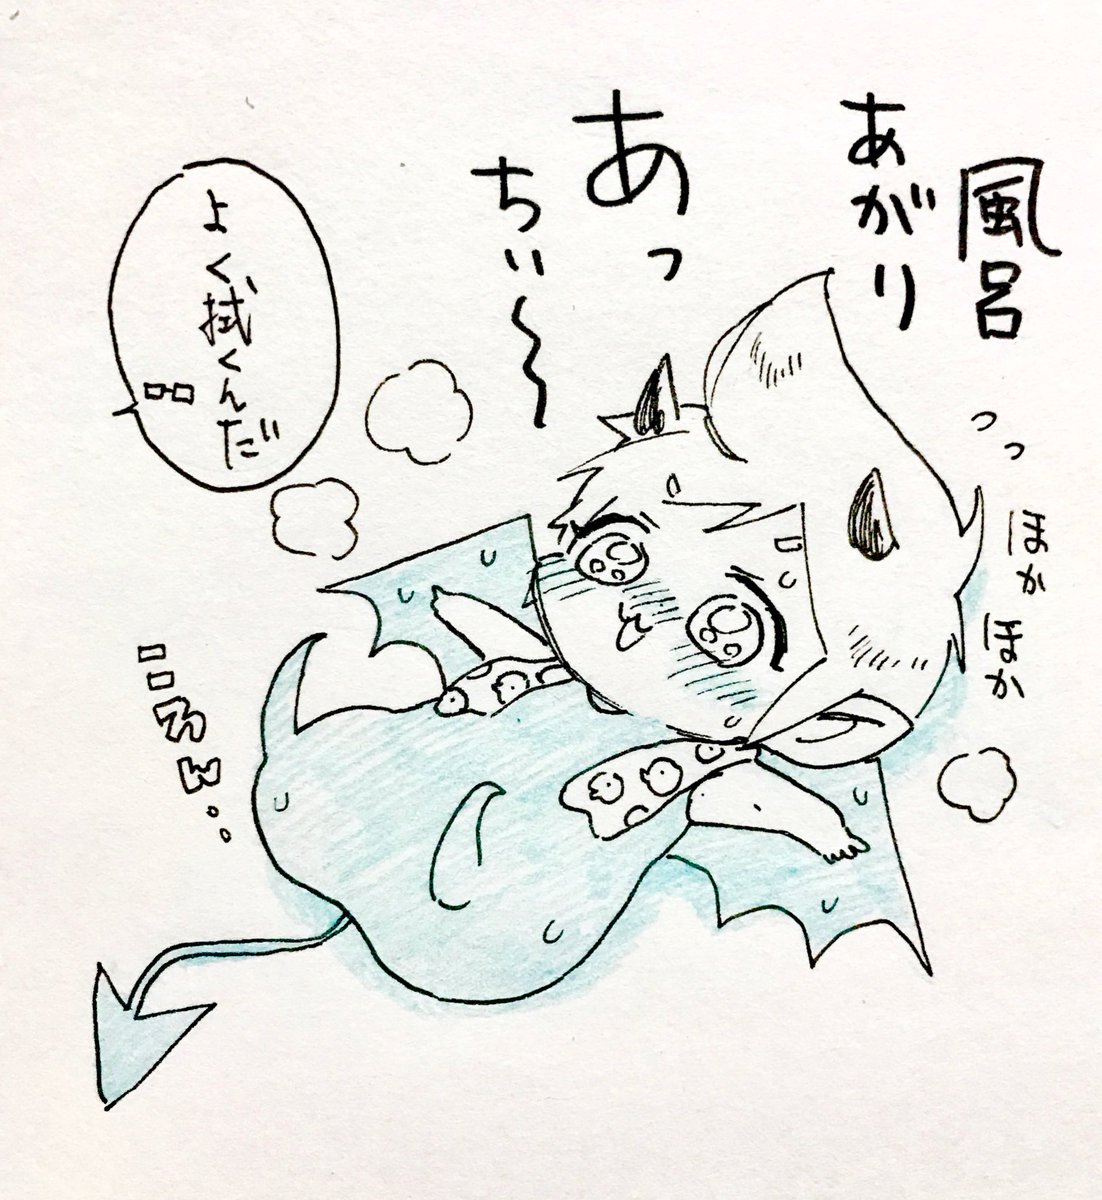 風呂
あがり
あっ
ちぃ〜
っっ
ほか
ほか
よく拭くんだ
ころん..